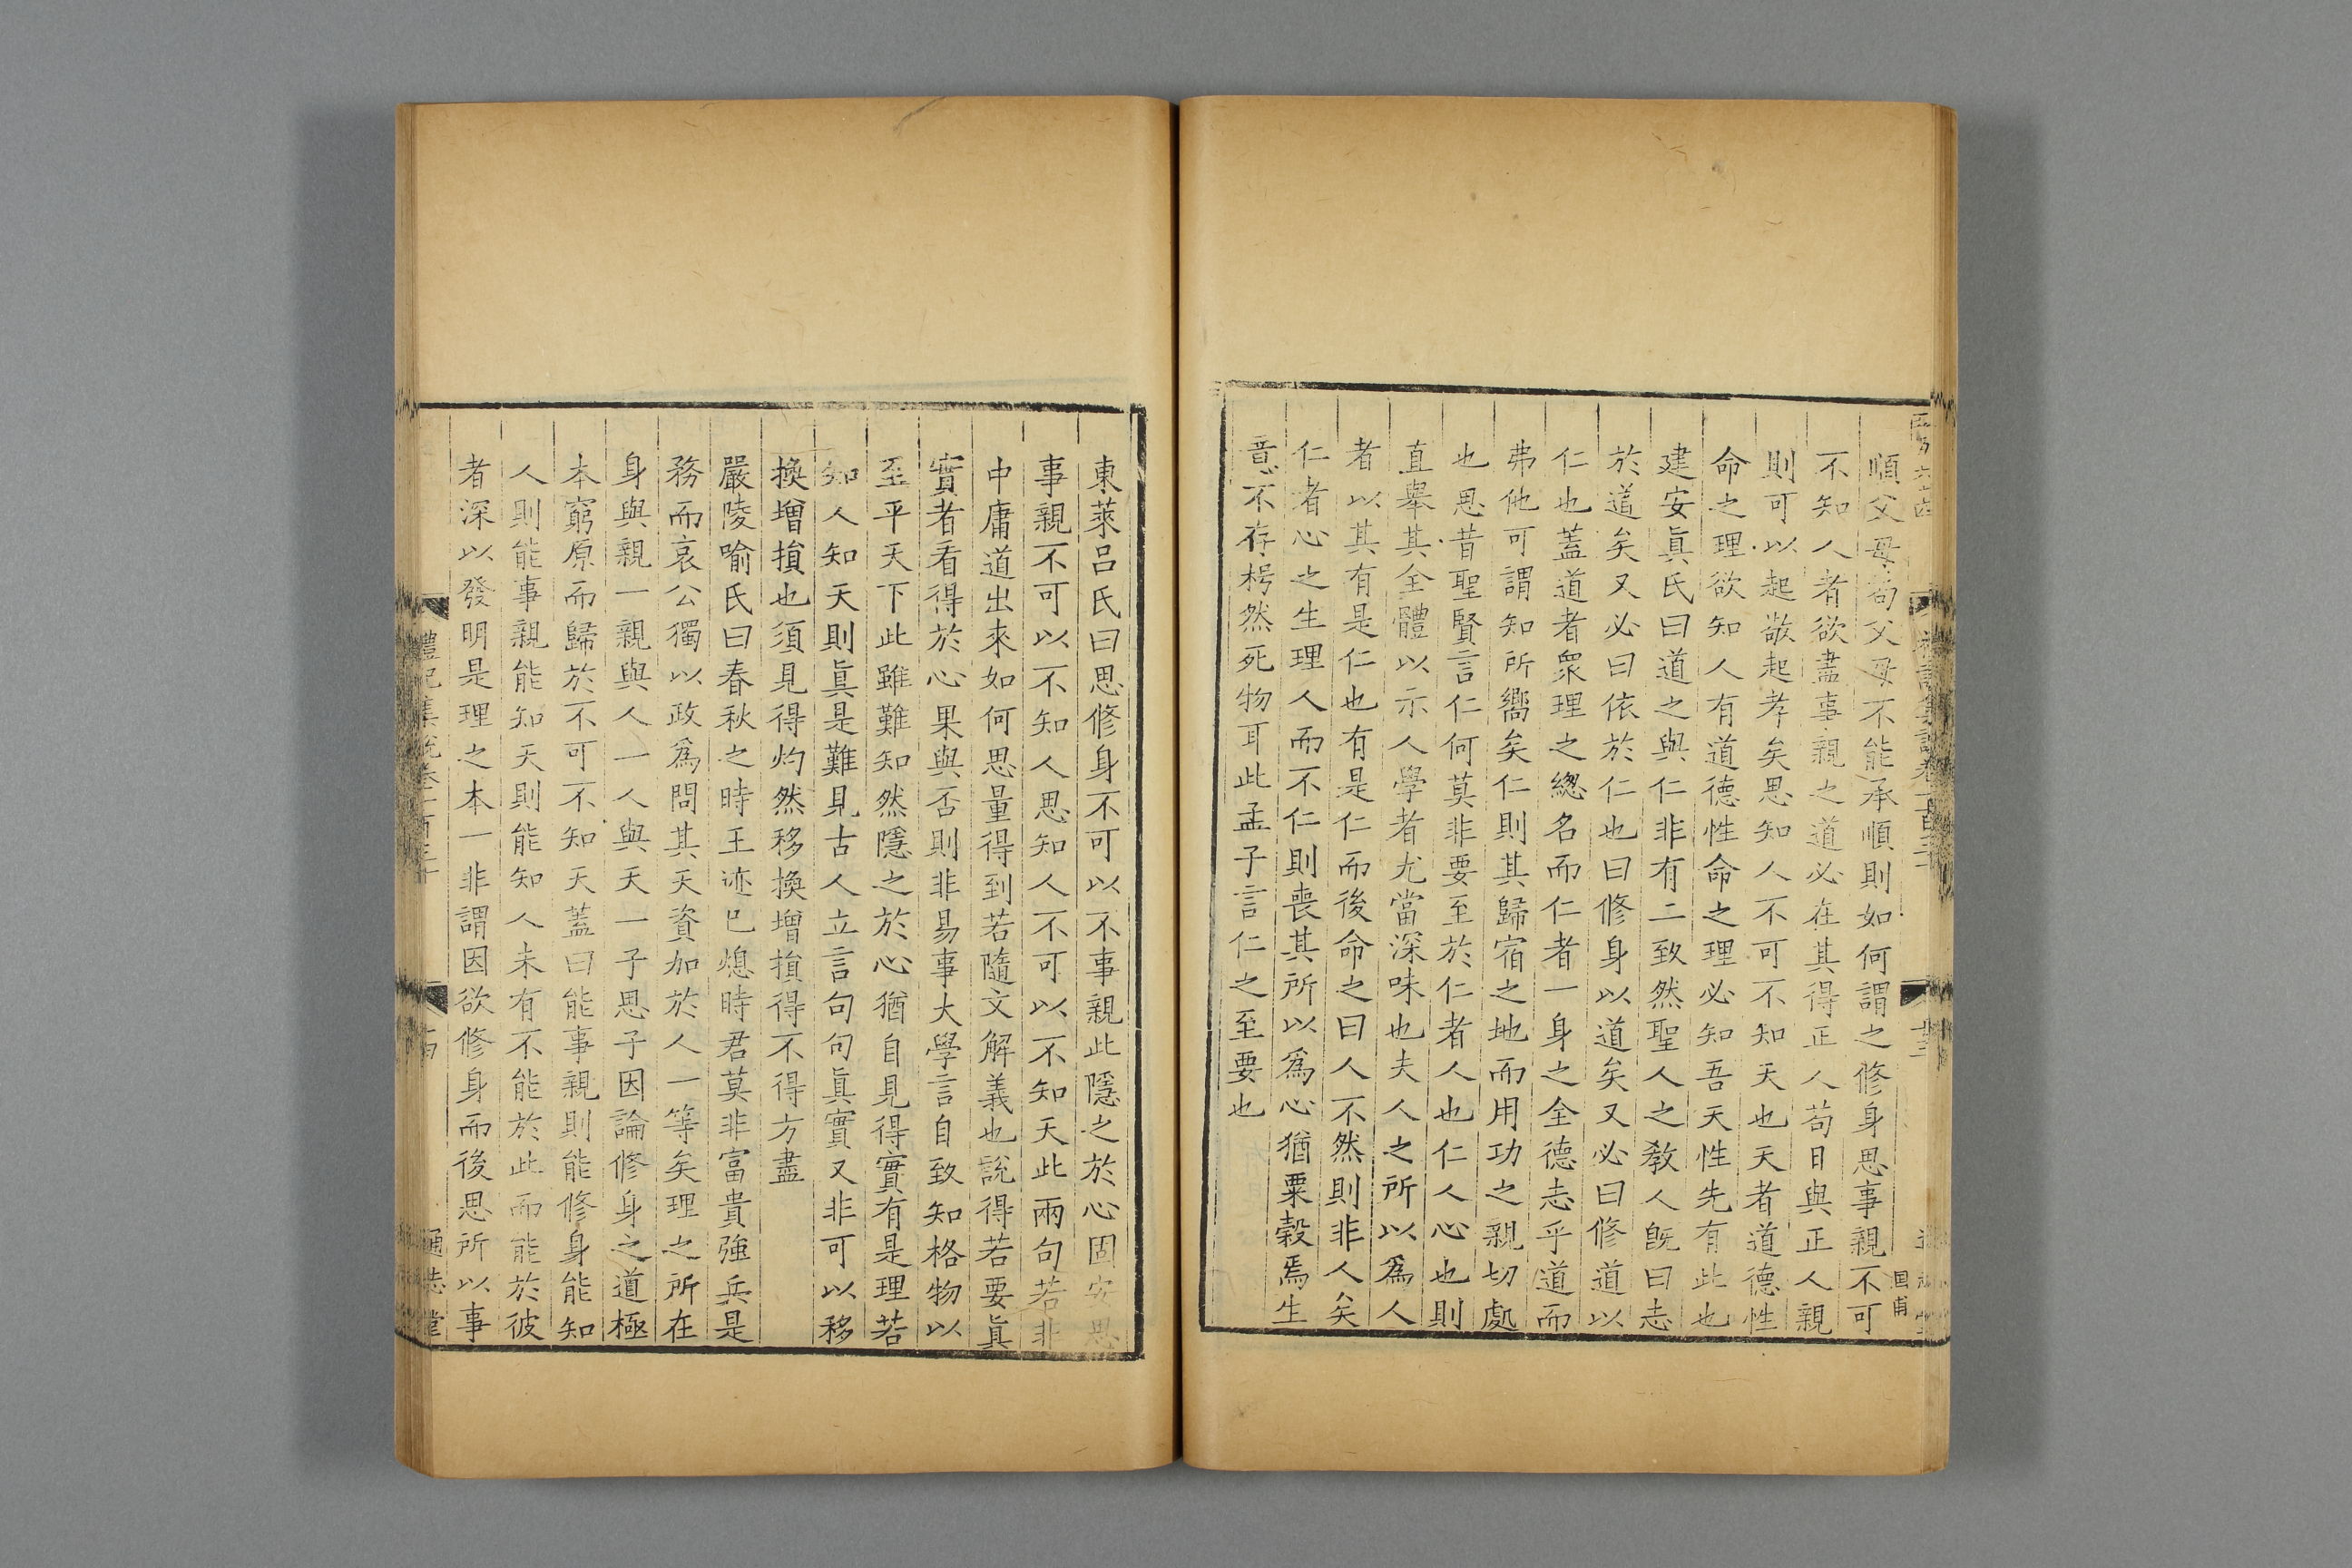 順父母苟父母不能承順則如何謂之修身思事親不可
不知人者欲盡事親之道必在其得正人苟日與正人親
則可以起敬起孝矣思知人不可不知天也天者道德性
命之理欲知人有道德性命之理必知吾天性先有此也
建安眞氏曰道之與仁非有二致然聖人之敎人旣曰志
於道矣又必曰依於仁也曰修身以道矣又必曰修道以
仁也蓋道者衆理之總名而仁者一身之全德志乎道而
弗他可謂知所嚮矣仁則其歸宿之地而用功之親切處
也思昔聖賢言仁何莫非要至於仁者人也仁人心也則
直舉其全體以示人學者尤當深味也夫人之所以爲人
者以其有是仁也有是仁而後命之曰人不然則非人矣
仁者心之生理人而不仁則喪其所以爲心猶粟穀焉生
意不存枵然死物耳此孟子言仁之至要也
禮記集說卷一百三十
十三
國甫
東萊呂氏曰思修身不可以不事親此隱之於心固安思
事親不可以不知人思知人不可以不知天此兩句若非
中庸道出來如何思量得到若隨文解義也說得若要眞
實者看得於心果與否則非易事大學言自致知格物以
至平天下此雖難知然隱之於心猶自見得實有是理若
知人知天則眞是難見古人立言句句眞實又非可以移
換增損也須見得灼然移換增損得不得方盡
嚴陵喻氏曰春秋之時王迹已熄時君莫非富貴強兵是
務而哀公獨以政爲問其天資加於人一等矣理之所在
身與親一親與人一人與天一子思子因論修身之道極
本窮原而歸於不可不知天蓋曰能事親則能修身能知
人則能事親能知天則能知人未有不能於此而能於彼
者深以發明是理之本一非謂因欲修身而後思所以事
禮記集說卷一百三十
十四
通志堂